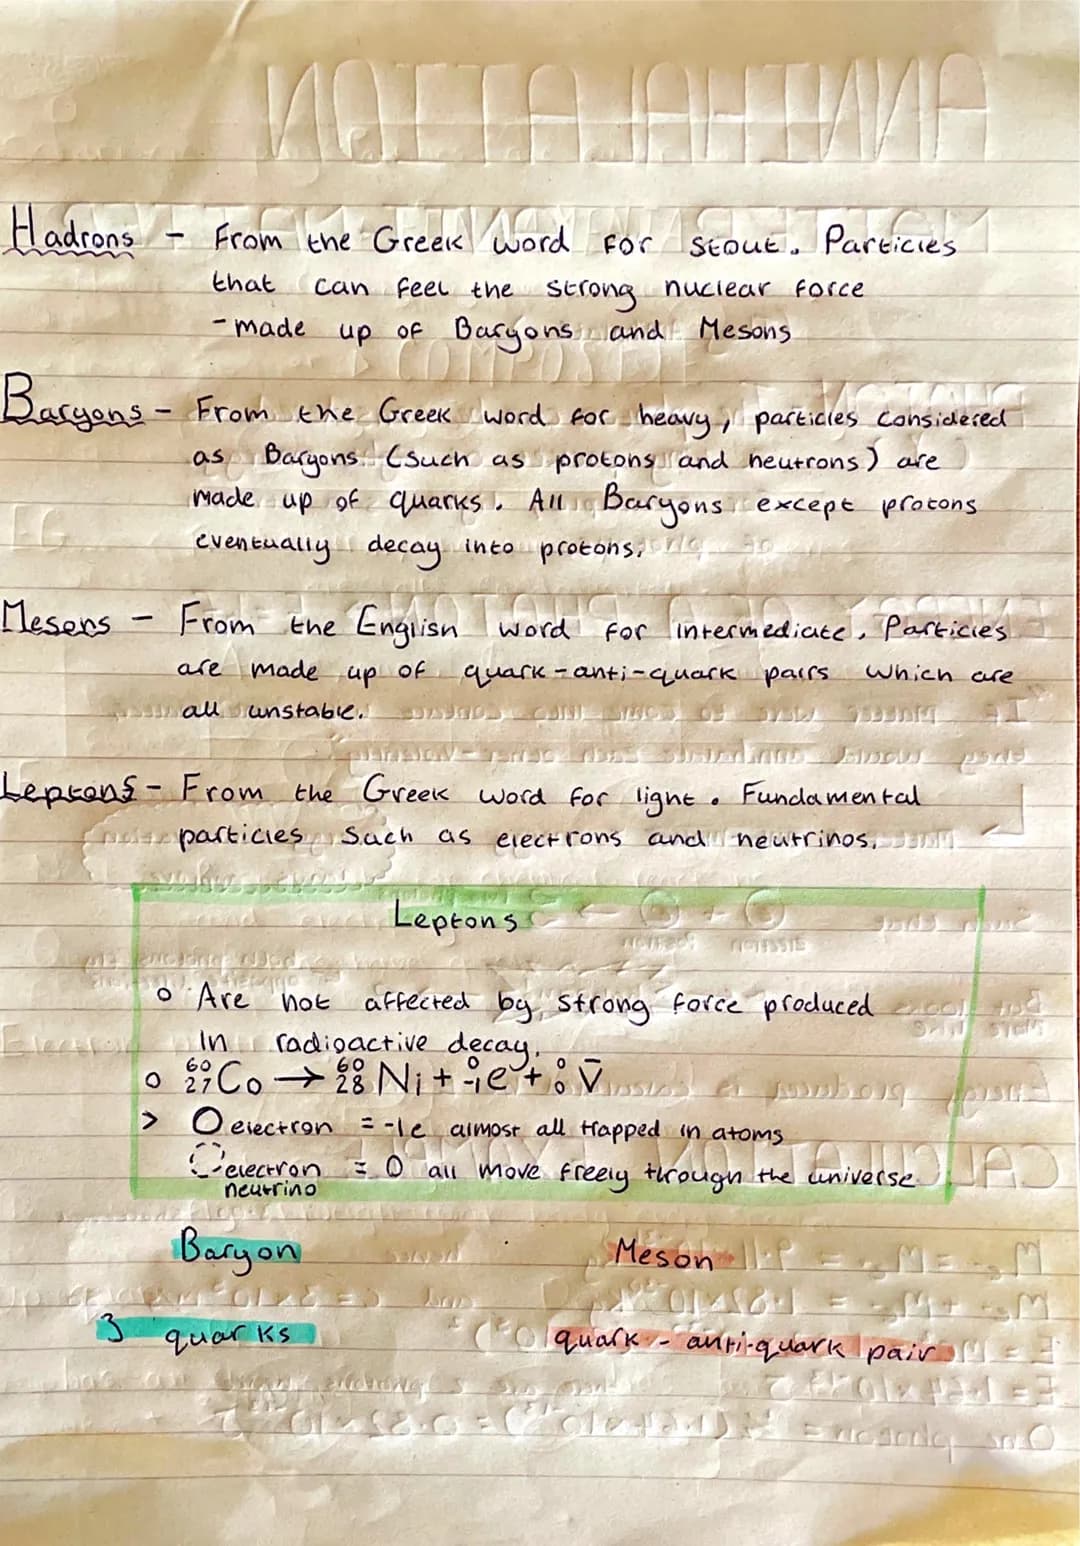 Hadrons - From the Greek word for stout. Particles
that can feel the strong nuclear force
- made up of Baryons and Mesons
Baryons - From the Greek word for heavy, particles considered
as Baryons (such as protons and neutrons) are
made up of quarks. All Baryons except protons
eventually decay into protons.
Mesons - From the English word for intermediate. Particles
are made up of quark-anti-quark pairs which are
all unstable.
Leptons - From the Greek word for light. Fundamental
particles such as electrons and neutrinos.
Leptons
o Are not affected by strong force produced
In radioactive decay.
o ⁶⁰₂₇Co → ⁶⁰₂₈Ni + ⁰₋₁e + ⁰₀ν̄
> O electron = -1e almost all trapped in atoms
electron = 0 all move freely through the universe
neutrino
Baryon Meson
3 quarks quark - anti-quark pair